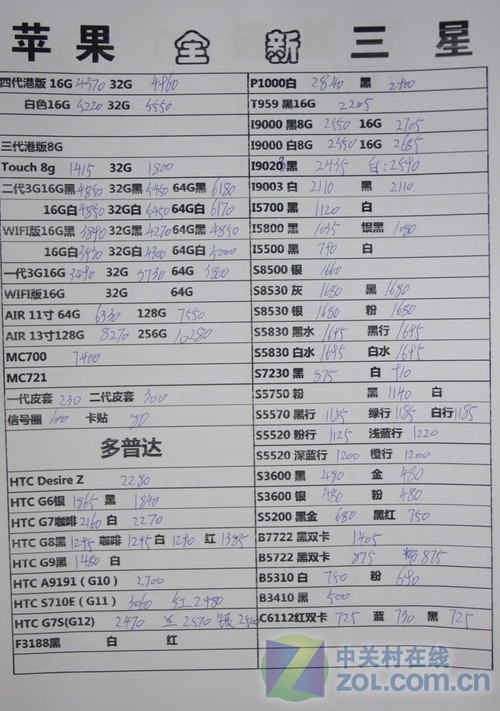 苹果 全新 三星
四代港版 16G 4370 32G 4960
白色16G 5220 32G 5550
三代港版8G
Touch 8g 1415 32G 1800
二代3G16G黑 4850 32G黑 5450 64G黑 6180
16G白 4850 32G白 5450 64G白 6170
WIFI版16G黑 3890 32G黑 4270 64G黑 4850
16G白 3930 32G白 4300 64G白 5000
一代3G16G 3490 32G 3730 64G 3800
WIFI版16G 32G 64G
AIR 11寸 64G 6330 128G 7550
AIR 13寸128G 8270 256G 10280
MC700 7400
MC721
一代皮套 230 二代皮套 300
信号圈 100 卡贴 80
多普达
HTC Desire Z 2280
HTC G6银 1865 黑 1840
HTC G7咖啡 2160 白 2270
HTC G8黑 1295 咖啡 1295 白 1290 红 1385
HTC G9黑 1480 白
HTC A9191 ( G10 ) 2700
HTC S710E ( G11 ) 3060 红 2980
HTC G7S(G12) 2470 2570 银 2500
F3188黑 白 红
P1000白 2840 黑 2900
T959 黑16G 2205
I9000 黑8G 2550 16G 2705
I9000 白8G 2550 16G 2685
I9020 黑 2435 白: 2590
I9003 白 2110 黑 2110
I5700 黑 1120 白
I5800 黑 1035 银黑 1080
I5500 黑 790 白
S8500 银 1660
S8530 灰 1680 黑 1680
S8530 银 1680 粉 1680
S5830 黑水 1695 黑行 1695
S5830 白水 1695 白水 1695
S7230 黑 875 白 910
S5750 粉 黑 1140 白
S5570 黑行 1185 绿行 1185 白行 1185
S5520 粉行 1125 浅蓝行 1220
S5520 深蓝行 1200 橙行 1200
S3600 黑 480 金 480
S3600 银 480 粉 480
S5200 黑金 680 黑红 750
B7722 黑双卡 1405
B5722 黑双卡 875 粉 875
B5310 白 750 粉 690
B3410 黑 500
C6112红双卡 725 蓝 730 黑 725
中关村在线
ZOL.COM.CN